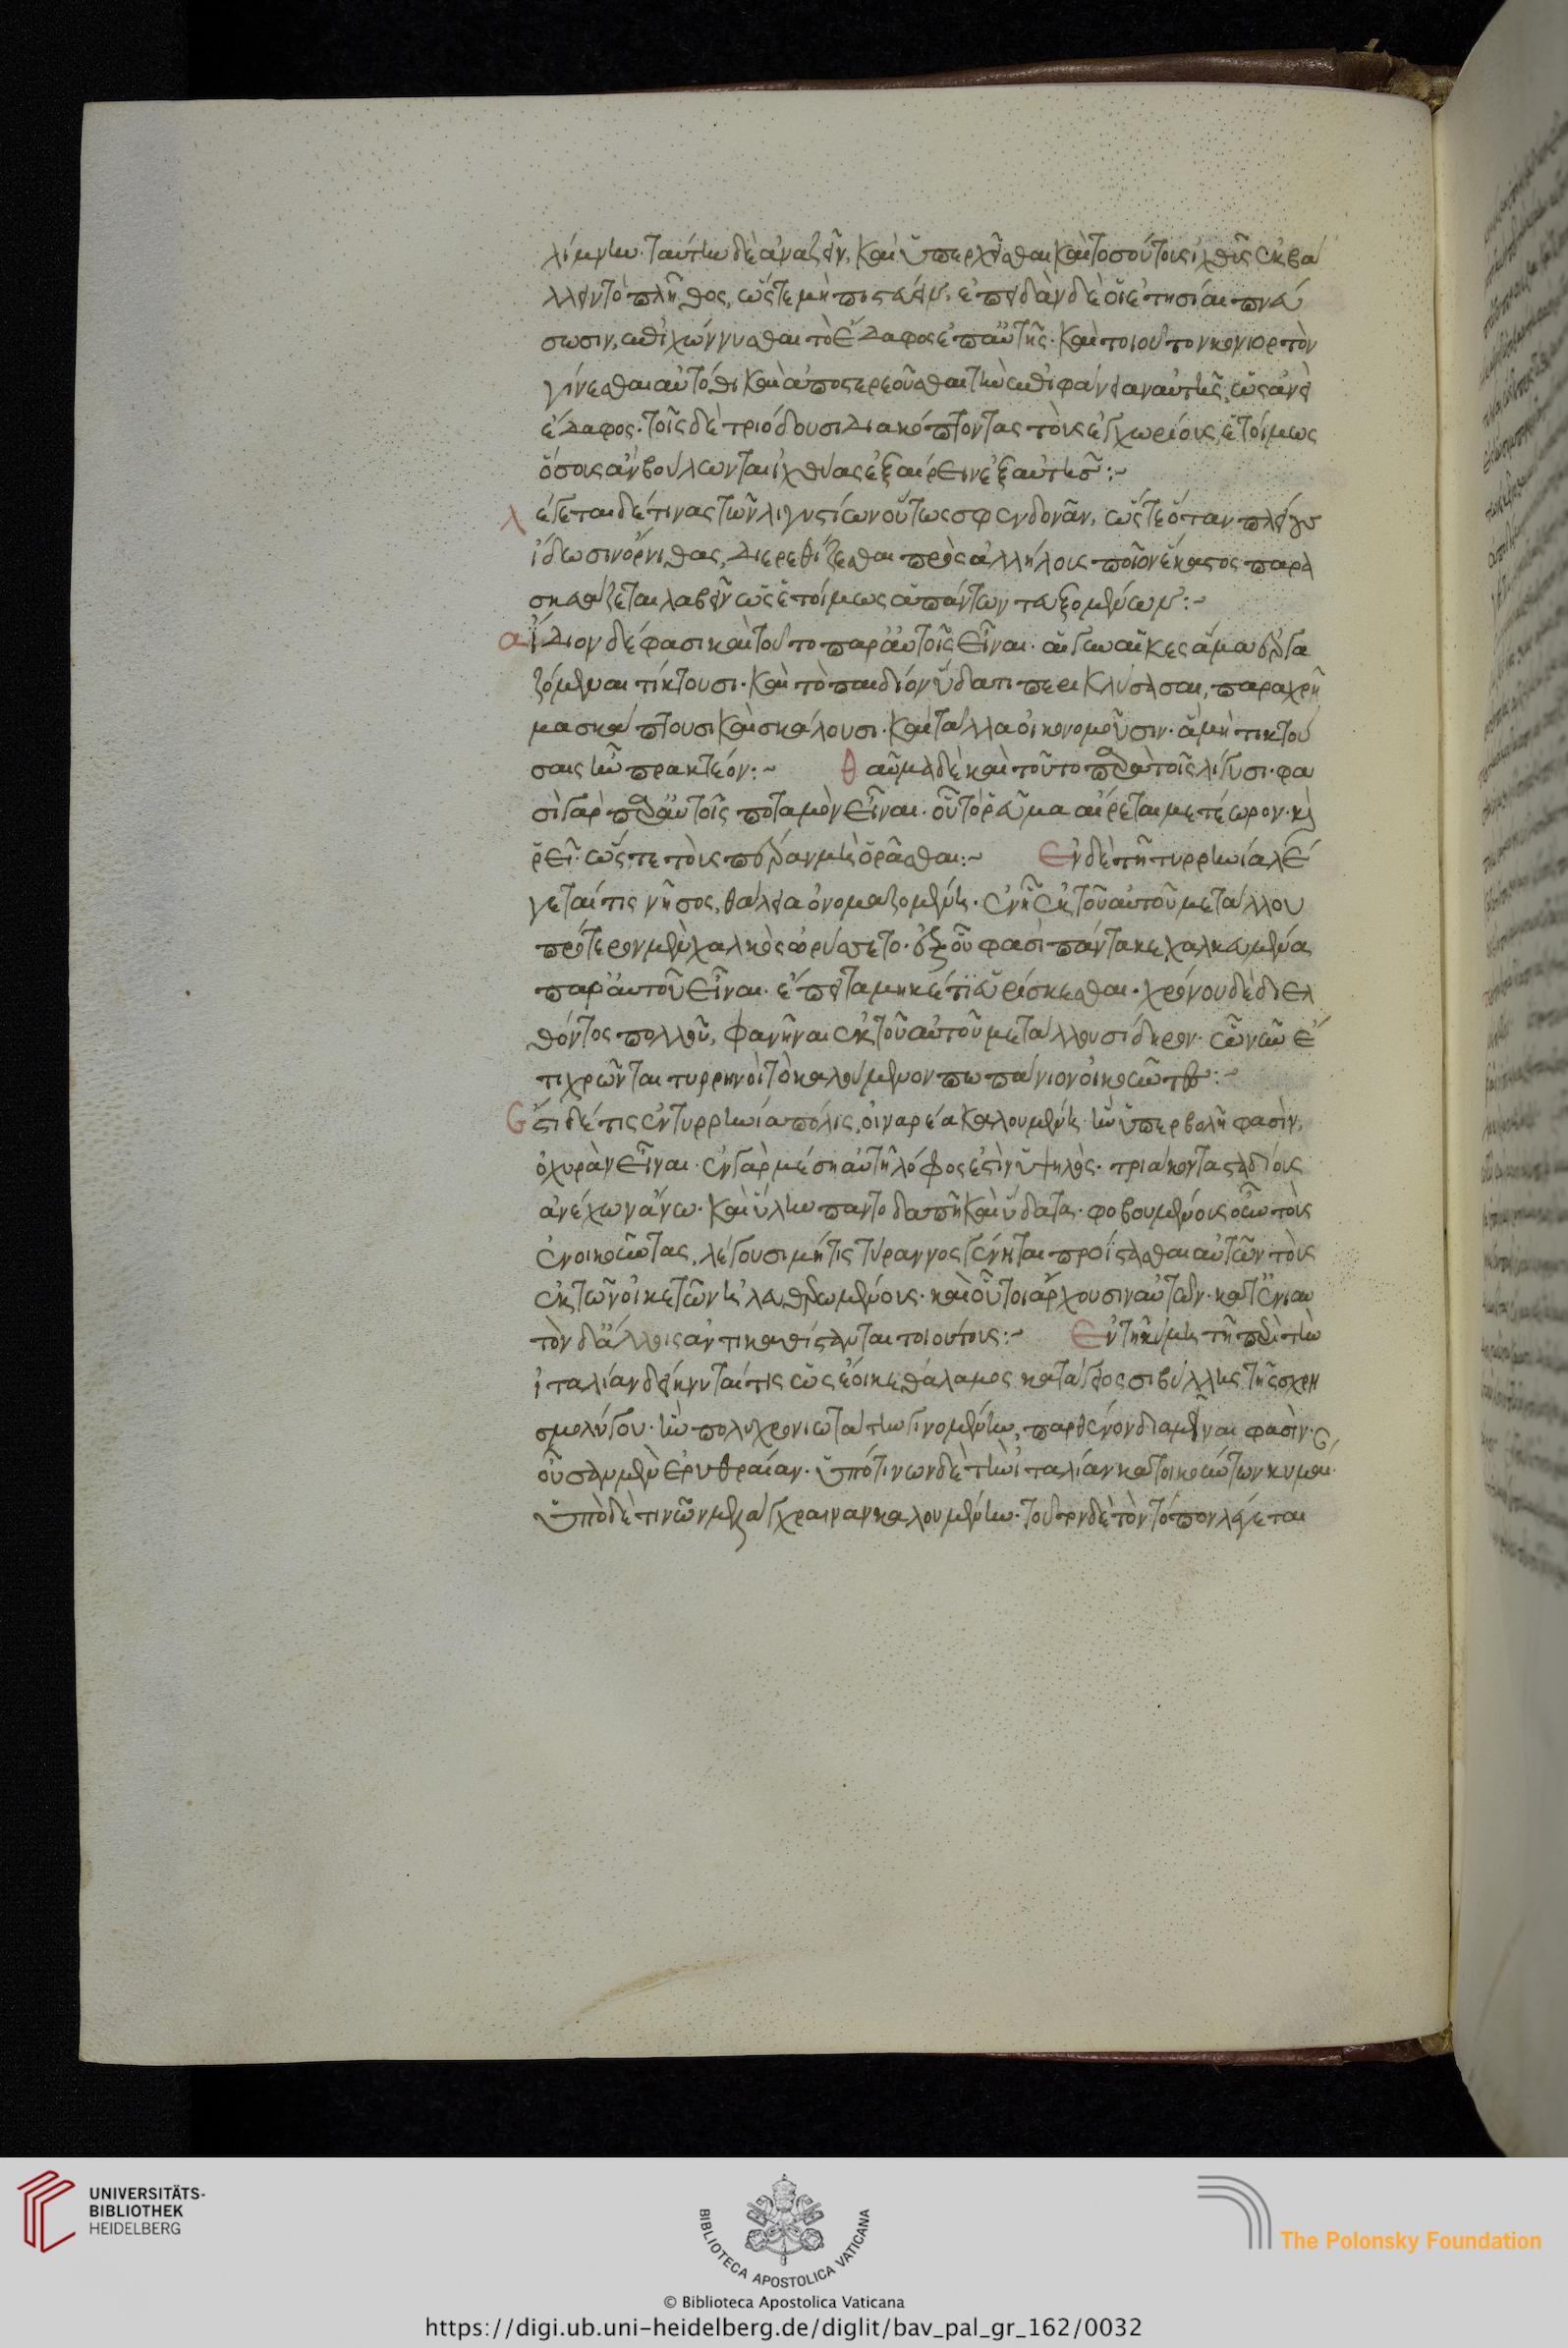 λίμνην. ταύτην δὲ ἀναζεῖν, καὶ ὑπερχεῖσθαι καὶ τοσούτους ἰχθῦς ἐκβά
λλειν τὸ πλῆθος, ὥστε μὴ πιστεύειν. ἐπειδὰν δὲ οἱ ἐτησίαι πνεύ
σωσιν, ἐπιχώννυσθαι τὸ ἔδαφος ἐπ' αὐτῆς. καὶ τοιοῦτον κονιορτὸν
γίνεσθαι αὐτόθι καὶ ἀποστερεοῦσθαι τὴν ἐπιφάνειαν αὐτῆς, ὡσανεὶ
ἔδαφος. τοῖς δὲ τριόδουσι διακόπτοντας τοὺς ἐγχωρίους, ἑτοίμως
ὅσους ἂν βούλωνται ἰχθύας ἐξαίρειν ἐξ αὐτῆς:~
λέγεται δέ τινας τῶν λιγυστίων οὕτως σφενδονᾶν, ὥστε ὅταν πλείους
ἴδωσιν ὄρνιθας, διερεθίζεσθαι πρὸς ἀλλήλους ποῖον ἕκαστος παρα
σκευάζεται λαβεῖν ὡς ἑτοίμως ἁπάντων τευξομένων:~
αἴδιον δέ φασι καὶ τοῦτο παρ' αὐτοῖς εἶναι. αἱ γυναῖκες ἅμα ἐργα
ζόμεναι τίκτουσι. καὶ τὸ παιδίον ὕδατι περικλύσασαι, παραχρῆ
μα σκάπτουσι καὶ σκάλουσι. καὶ τἄλλα οἰκονομοῦσιν. ἃ μὴ τικτού
σαις ἦν πρακτέον:~ θαῦμα δὲ καὶ τοῦτο παρὰ τοῖς λίγυσι. φα
σὶ γὰρ παρ' αὐτοῖς ποταμὸν εἶναι. οὗ τὸ ῥεῦμα αἴρεται μετέωρον. καὶ
ῥεῖ. ὥστε τοὺς πέραν μὴ ὁρᾶσθαι:~ Ἐν δὲ τῇ τυρρηνίᾳ λέ
γεταί τις νῆσος, θάλεια ὀνομαζομένη. ἐν ᾗ ἐκ τοῦ αὐτοῦ μετάλλου
πρότερον μὲν χαλκὸς ὠρύσσετο. ἐξ οὗ φασὶ πάντα κεχαλκευμένα
παρ' αὐτοῦ εἶναι. ἔπειτα μηκέτι εὑρίσκεσθαι. χρόνου δὲ διελ
θόντος πολλοῦ, φανῆναι ἐκ τοῦ αὐτοῦ μετάλλου σίδηρον. ᾧ νῦν ἔ
τι χρῶνται τυρρηνοὶ τὸ καλούμενον πωπάνιον οἰκοῦντες:~
Ἔστι δέ τις ἐν τυρρηνίᾳ πόλις, οἰναρέα καλουμένη. ἣν ὑπερβολῇ φασὶν,
ὀχυρὰν εἶναι. ἐν γὰρ μέσῃ αὐτῇ λόφος ἐστὶν ὑψηλὸς. τριάκοντα σταδίους
ἀνέχων ἄνω. καὶ ὕλην παντοδαπὴ καὶ ὕδατα. φοβουμένους οὖν τοὺς
ἐνοικοῦντας, λέγουσι μή τις τύραννος γένηται προΐστασθαι αὐτῶν τοὺς
ἐκ τῶν οἰκετῶν ἠλευθερωμένους. καὶ οὗτοι ἄρχουσιν αὐτῶν. κατ' ἐνιαυ
τὸν δ' ἄλλους ἀντικαθίστανται τοιούτους:~ Ἐν τῇ κύμῃ τῇ περὶ τὴν
ἰταλίαν δείκνυταί τις ὡς ἔοικε θάλαμος κατάγειος σιβύλλης τῆς χρη
σμολόγου. ἣν πολυχρονιωτάτην γινομένην, παρθένον διαμεῖναι φασὶν.
οὖσαν μὲν ἐρυθραίαν. ὑπό τινων δὲ τὴν ἰταλίαν κατοικούντων κυμαι.
ὑπὸ δέ τινων μελάγχραιναν καλουμένην. τοῦτον δὲ τὸν τόπον λέγεται
UNIVERSITÄTS-
BIBLIOTHEK
HEIDELBERG
BIBLIOTECA APOSTOLICA VATICANA
The Polonsky Foundation
© Biblioteca Apostolica Vaticana
https://digi.ub.uni-heidelberg.de/diglit/bav_pal_gr_162/0032